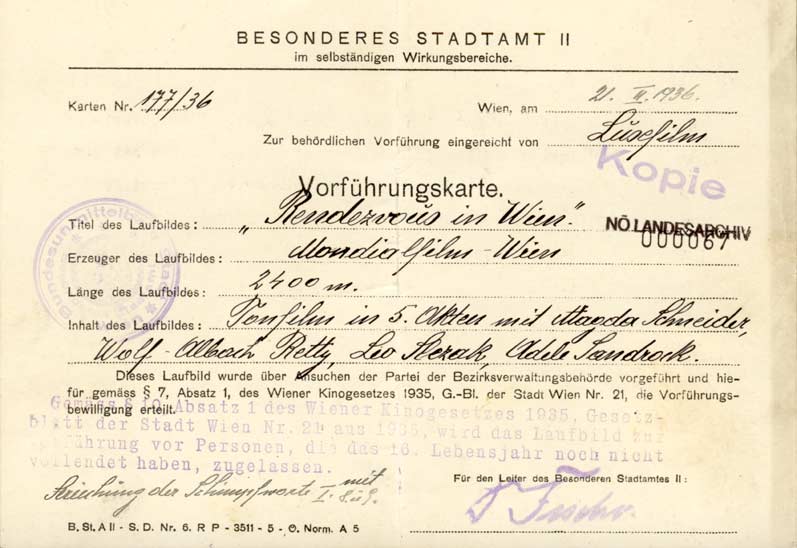 BESONDERES STADTAMT II
im selbständigen Wirkungsbereiche.
Karten Nr. 177/36
Wien, am 21. II. 1936.
Zur behördlichen Vorführung eingereicht von Luxefilm
Kopie
Vorführungskarte.
Titel des Laufbildes: „Rendezvous in Wien".
NÖ. LANDESARCHIV
000067
Erzeuger des Laufbildes: Mondialfilm-Wien
Länge des Laufbildes: 2400 m.
Inhalt des Laufbildes: Tonfilm in 5. Akten mit Magda Schneider,
Wolf-Albach Retty, Leo Slezak, Adele Sandrock.
Dieses Laufbild wurde über Ansuchen der Partei der Bezirksverwaltungsbehörde vorgeführt und hie-
für gemäss § 7, Absatz 1, des Wiener Kinogesetzes 1935, G.-Bl. der Stadt Wien Nr. 21, die Vorführungs-
bewilligung erteilt.
Gemäss § Absatz 1 des Wiener Kinogesetzes 1935, Gesetz-
blatt der Stadt Wien Nr. 21 aus 1935, wird das Laufbild zur
führung vor Personen, die das 16. Lebensjahr noch nicht
vollendet haben, zugelassen.
mit
Streichung der Schimpfworte I.
Für den Leiter des Besonderen Stadtamtes II:
B. St. A II - S. D. Nr. 6. R P - 3511 - 5 - O. Norm. A 5